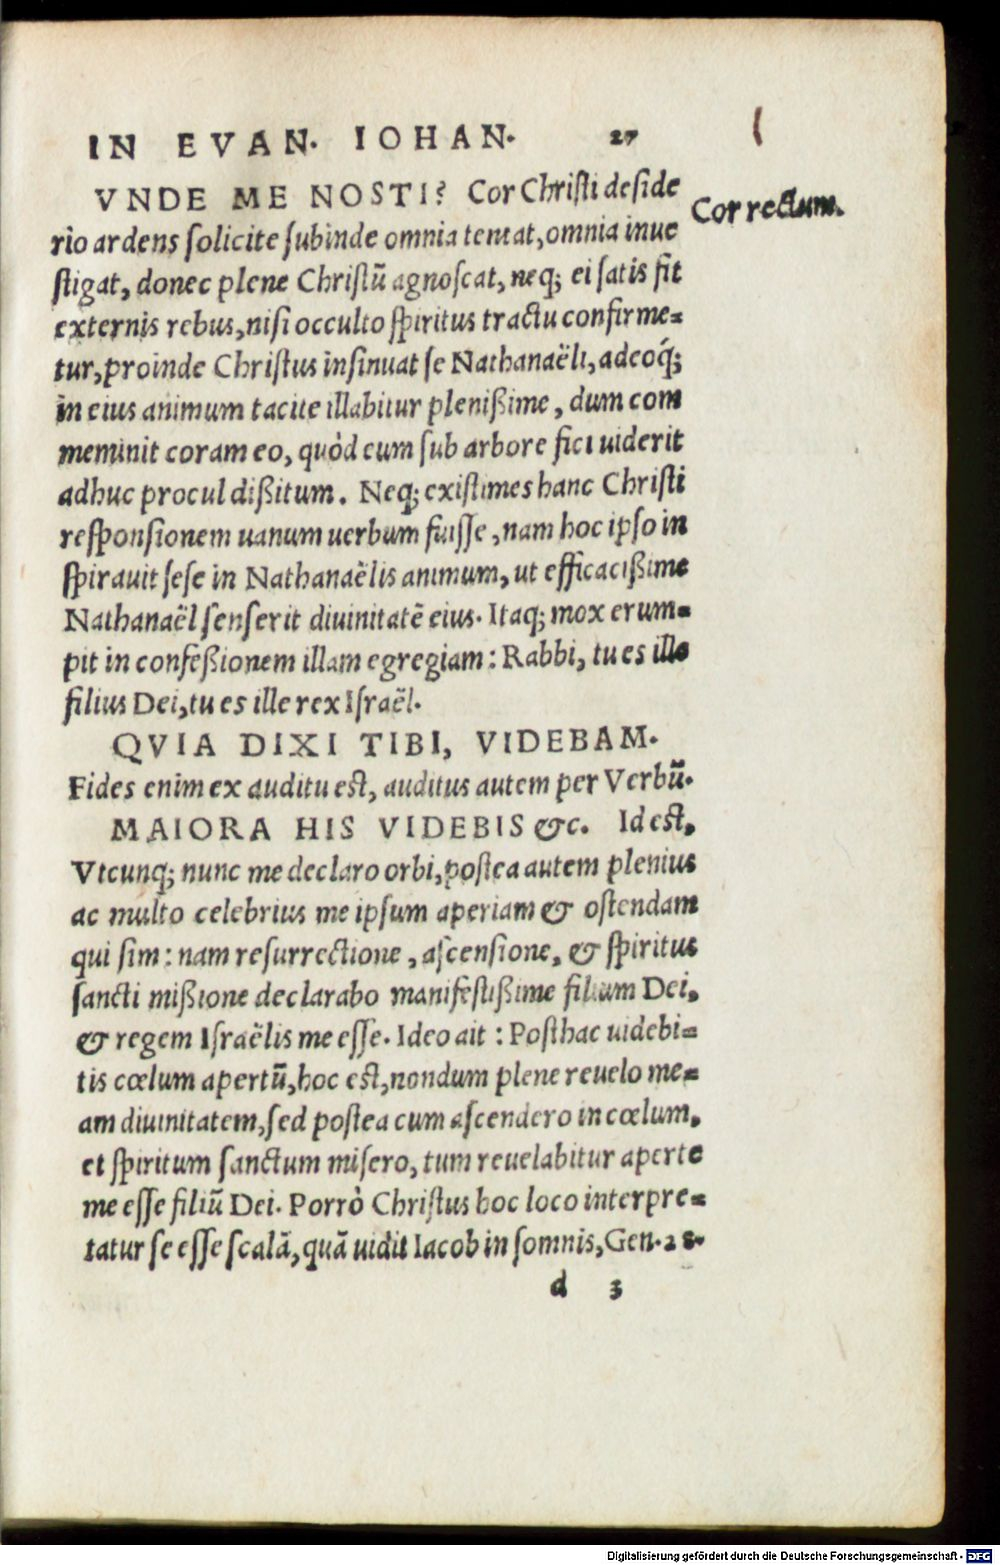 IN EVAN. IOHAN. 27
VNDE ME NOSTI? Cor Christi deside
Cor rectum.
rio ardens solicite subinde omnia tentat, omnia inue
stigat, donec plene Christū agnoscat, neq; ei satis fit
externis rebus, nisi occulto spiritus tractu confirme-
tur, proinde Christus insinuat se Nathanaëli, adeoq́;
in eius animum tacite illabitur plenißime, dum com
meminit coram eo, quòd eum sub arbore fici uiderit
adhuc procul dißitum. Neq; existimes hanc Christi
responsionem uanum uerbum fuisse, nam hoc ipso in
spirauit sese in Nathanaëlis animum, ut efficacißime
Nathanaël senserit diuinitatē eius. Itaq; mox erum-
pit in confeßionem illam egregiam: Rabbi, tu es ille
filius Dei, tu es ille rex Israël.
QVIA DIXI TIBI, VIDEBAM.
Fides enim ex auditu est, auditus autem per Verbū.
MAIORA HIS VIDEBIS &c. Id est,
Vtcunq; nunc me declaro orbi, postea autem plenius
ac multo celebrius me ipsum aperiam & ostendam
qui sim: nam resurrectione, ascensione, & spiritus
sancti mißione declarabo manifestißime filium Dei,
& regem Israëlis me esse. Ideo ait: Posthac uidebi-
tis cœlum apertū, hoc est, nondum plene reuelo me-
am diuinitatem, sed postea cum ascendero in cœlum,
et spiritum sanctum misero, tum reuelabitur aperte
me esse filiū Dei. Porrò Christus hoc loco interpre-
tatur se esse scalā, quā uidit Iacob in somnis, Gen. 28.
d 3
Digitalisierung gefördert durch die Deutsche Forschungsgemeinschaft - DFG